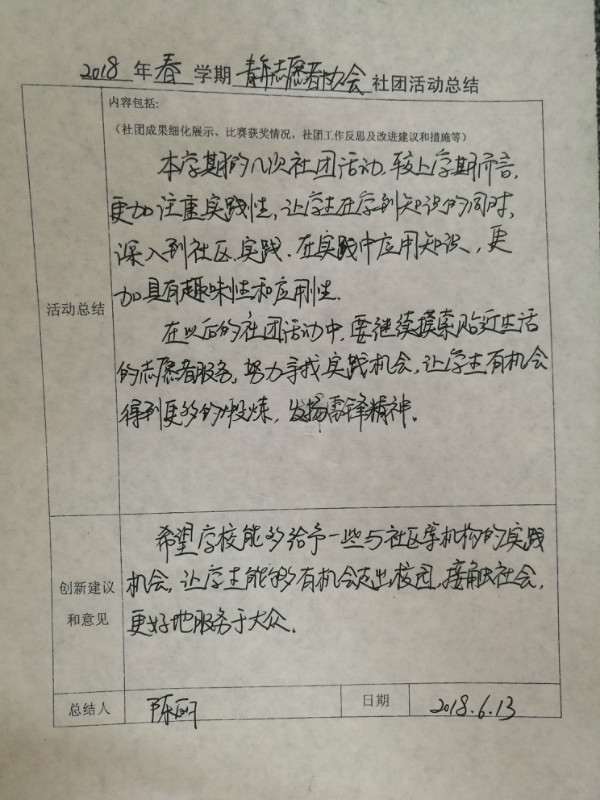 2018 年 春 学期 青年志愿者协会 社团活动总结
内容包括:
（社团成果细化展示、比赛获奖情况，社团工作反思及改进建议和措施等）
本学期的几次社团活动,较上学期而言,
更加注重实践性,让学生在学到知识的同时,
深入到社区,实践.在实践中应用知识,更
加具有趣味性和应用性.
活动总结
在以后的社团活动中,要继续摸索贴近生活
的志愿者服务,努力寻找实践机会,让学生有机会
得到更多的锻炼,发扬雷锋精神.
希望学校能够给予一些与社区等机构的实践
机会,让学生能够有机会走出校园,接触社会,
更好地服务于大众.
创新建议
和意见
总结人 陈丽 日期 2018.6.13